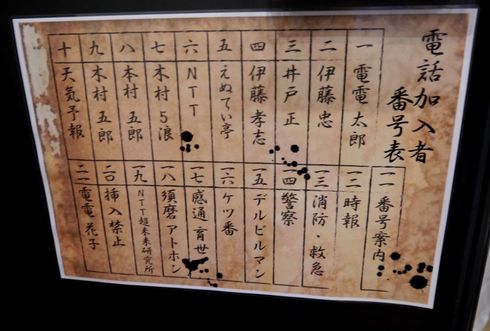 電話加入者
番号表
一 電電 太郎
二 伊藤 忠
三 井戸 正
四 伊藤孝志
五 えぬてい亭
六 NTT
七 木村5浪
八 本村 五郎
九 木村 五郎
十 天気予報
一一 番号案内
一二 時報
一三 消防・救急
一四 警察
一五 デルビルマン
一六 ケツ番
一七 感通 育世
一八 須磨 アトホン
一九 NTT超未来研究所
二〇 挿入禁止
二一 電電 花子